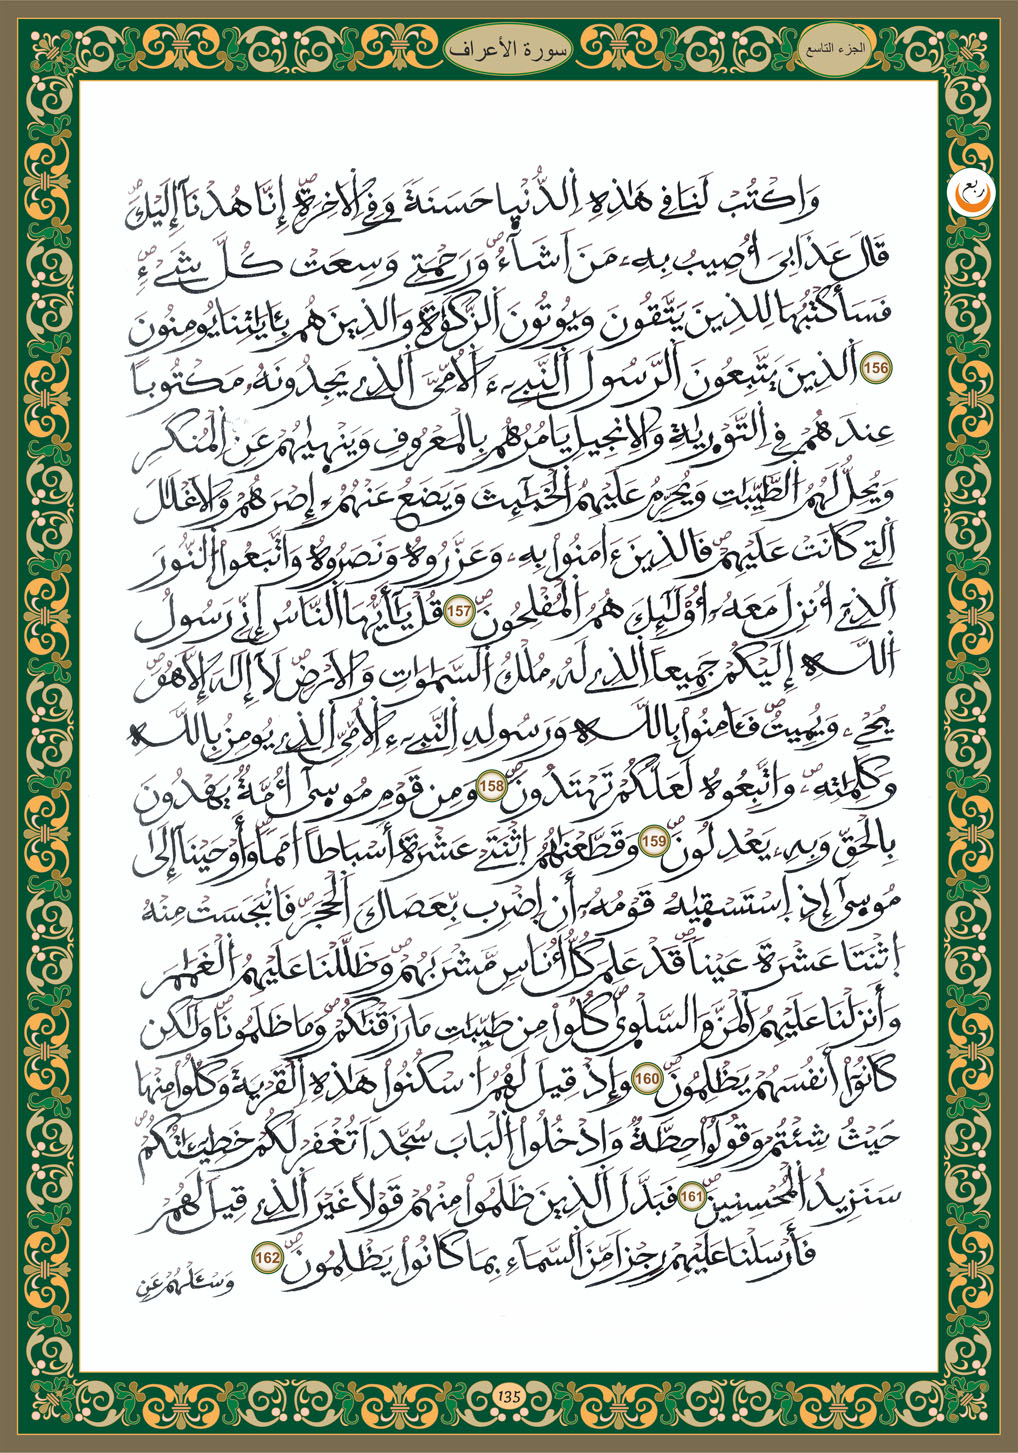 الجزء التاسع
سورة الأعراف
ربع
وَاكْتُبْ لَنَا فِي هَٰذِهِ اِلدُّنْيَا حَسَنَةً وَفِي اِلَاخِرَةِ إِنَّا هُدْنَآ إِلَيْكَ
قَالَ عَذَابِيَ أُصِيبُ بِهِۦ مَنَ اَشَآءُ وَرَحْمَتِي وَسِعَتْ كُلَّ شَيْءٍ
فَسَأَكْتُبُهَا لِلذِينَ يَتَّقُونَ وَيُوتُونَ اَلزَّكَوٰةَ وَالذِينَ هُم بِـَٔايَٰتِنَا يُومِنُونَ
156 اَلذِينَ يَتَّبِعُونَ اَلرَّسُولَ اَلنَّبِيٓءَ اَلُامِّيَّ اَلذِي يَجِدُونَهُۥ مَكْتُوباً
عِندَهُمْ فِي اِلتَّوْرَيٰةِ وَالِانجِيلِ يَامُرُهُم بِالْمَعْرُوفِ وَيَنْهَيٰهُمْ عَنِ اِلْمُنكَرِ
وَيُحِلُّ لَهُمُ اُلطَّيِّبَٰتِ وَيُحَرِّمُ عَلَيْهِمُ اُلْخَبَٰٓئِثَ وَيَضَعُ عَنْهُمُۥٓ إِصْرَهُمْ وَالَاغْلَٰلَ
اَلتِي كَانَتْ عَلَيْهِمْ فَالذِينَ ءَامَنُوا بِهِۦ وَعَزَّرُوهُ وَنَصَرُوهُ وَاتَّبَعُوا اُلنُّورَ
اَلذِي أُنزِلَ مَعَهُۥٓ أُوْلَٰٓئِكَ هُمُ اُلْمُفْلِحُونَ 157 قُلْ يَٰٓأَيُّهَا اَلنَّاسُ إِنِّي رَسُولُ
اُللَّهِ إِلَيْكُمْ جَمِيعاً اِلذِي لَهُۥ مُلْكُ اُلسَّمَٰوَٰتِ وَالَارْضِ لَآ إِلَٰهَ إِلَّا هُوَ
يُحْيِۦ وَيُمِيتُ فَـَٔامِنُوا بِاللَّهِ وَرَسُولِهِ اِلنَّبِيٓءِ اِلُامِّيِّ اِلذِي يُومِنُ بِاللَّهِ
وَكَلِمَٰتِهِۦ وَاتَّبِعُوهُ لَعَلَّكُمْ تَهْتَدُونَ 158 وَمِن قَوْمِ مُوسَىٰٓ أُمَّةٌ يَهْدُونَ
بِالْحَقِّ وَبِهِۦ يَعْدِلُونَ 159 وَقَطَّعْنَٰهُمُ اُثْنَتَيْ عَشْرَةَ أَسْبَاطاً اُمَماً وَأَوْحَيْنَآ إِلَىٰ
مُوسَىٰٓ إِذِ اِسْتَسْقَيٰهُ قَوْمُهُۥٓ أَنِ اِضْرِب بِّعَصَاكَ اَلْحَجَرَ فَانۢبَجَسَتْ مِنْهُ
اُثْنَتَا عَشْرَةَ عَيْناً قَدْ عَلِمَ كُلُّ أُنَاسٍ مَّشْرَبَهُمْ وَظَلَّلْنَا عَلَيْهِمُ اُلْغَمَٰمَ
وَأَنزَلْنَا عَلَيْهِمُ اُلْمَنَّ وَالسَّلْوَىٰ كُلُوا مِن طَيِّبَٰتِ مَا رَزَقْنَٰكُمْ وَمَا ظَلَمُونَا وَلَٰكِن
كَانُوٓا أَنفُسَهُمْ يَظْلِمُونَ 160 وَإِذْ قِيلَ لَهُمُ اُسْكُنُوا هَٰذِهِ اِلْقَرْيَةَ وَكُلُوا مِنْهَا
حَيْثُ شِئْتُمْ وَقُولُوا حِطَّةٌ وَادْخُلُوا اُلْبَابَ سُجَّداً تُغْفَرْ لَكُمْ خَطِيٓـَٰٔتُكُمْ
سَنَزِيدُ اُلْمُحْسِنِينَ 161 فَبَدَّلَ اَلذِينَ ظَلَمُوا مِنْهُمْ قَوْلاً غَيْرَ اَلذِي قِيلَ لَهُمْ
فَأَرْسَلْنَا عَلَيْهِمْ رِجْزاً مِّنَ اَلسَّمَآءِ بِمَا كَانُوا يَظْلِمُونَ 162
وَسْـَٔلْهُمْ عَنِ
135